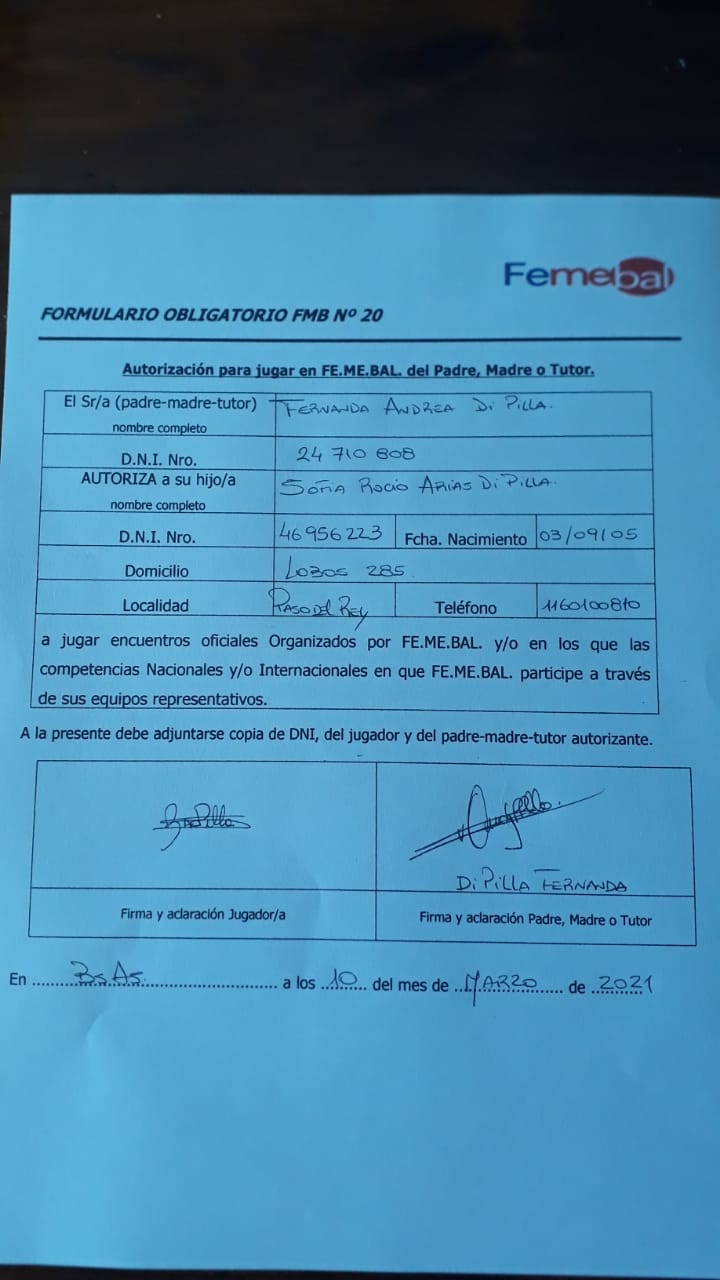 Femebal
FORMULARIO OBLIGATORIO FMB Nº 20
Autorización para jugar en FE.ME.BAL. del Padre, Madre o Tutor.
El Sr/a (padre-madre-tutor) FERNANDA ANDREA DI PILLA.
nombre completo
D.N.I. Nro. 24 710 808
AUTORIZA a su hijo/a SOFIA ROCIO ARIAS DI PILLA.
nombre completo
D.N.I. Nro. 46956223 Fcha. Nacimiento 03/09/05
Domicilio LOBOS 285
Localidad PASO DEL REY Teléfono 1160100810
a jugar encuentros oficiales Organizados por FE.ME.BAL. y/o en los que las
competencias Nacionales y/o Internacionales en que FE.ME.BAL. participe a través
de sus equipos representativos.
A la presente debe adjuntarse copia de DNI, del jugador y del padre-madre-tutor autorizante.
DI PILLA FERNANDA
Firma y aclaración Jugador/a Firma y aclaración Padre, Madre o Tutor
En ....Bs.As..... a los ..10.. del mes de ..MARZO.... de ..2021